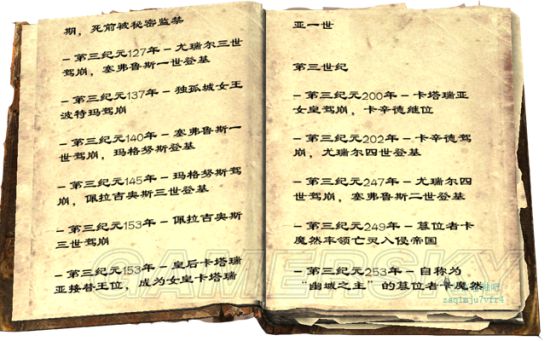 期，死前被秘密监禁
－第三纪元127年－尤瑞尔三世
驾崩，塞弗鲁斯一世登基
－第三纪元137年－独孤城女王
波特玛驾崩
－第三纪元140年－塞弗鲁斯一
世驾崩，玛格努斯登基
－第三纪元145年－玛格努斯驾
崩，佩拉吉奥斯三世登基
－第三纪元153年－佩拉吉奥斯
三世驾崩
－第三纪元153年－皇后卡塔瑞
亚接替王位，成为女皇卡塔瑞
亚一世
第三世纪
－第三纪元200年－卡塔瑞亚
女皇驾崩，卡辛德继位
－第三纪元202年－卡辛德驾
崩，尤瑞尔四世登基
－第三纪元247年－尤瑞尔四
世驾崩，塞弗鲁斯二世登基
－第三纪元249年－篡位者卡
魔然率领亡灵入侵帝国
－第三纪元253年－自称为
“幽城之主”的篡位者卡魔然
GAMERSKY
zaq1mju7vfr4